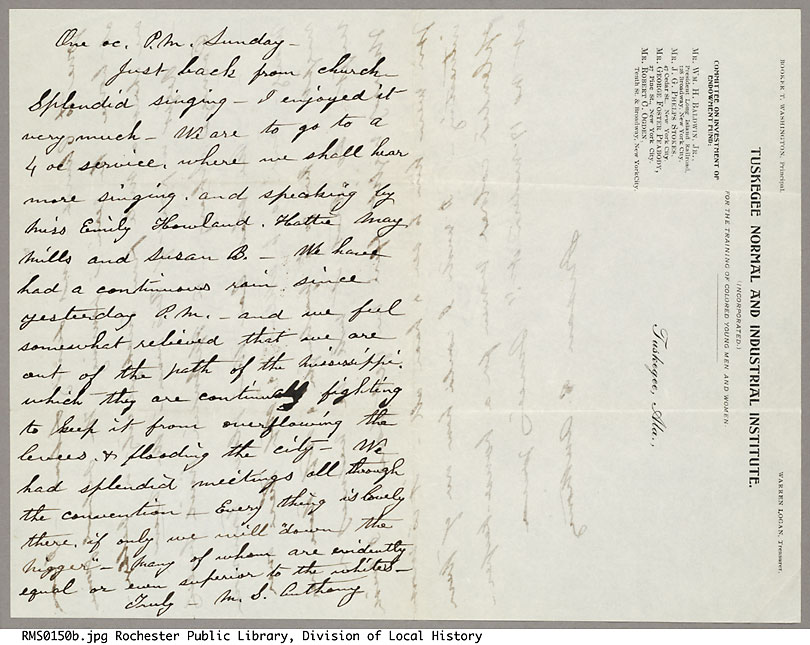 One oc. P.M. Sunday -
Just back from church
Splendid singing - I enjoyed it
very much - We are to go to a
4 oc service, where we shall hear
more singing. and speaking by
Miss Emily Howland. Hattie May
Mills and Susan B. - We have
had a continuous rain since
yesterday P.M. - and we feel
somewhat relieved that we are
out of the path of the Mississippi.
which they are continually fighting
to keep it from overflowing the
levees. & flooding the city - We
had splendid meetings all through
the convention - Every thing is lovely
there, if only we will "down the
nigger" - Many of whom are evidently
equal or even superior to the whites -
Truly - M. S. Anthony
BOOKER T. WASHINGTON, Principal.
WARREN LOGAN, Treasurer.
TUSKEGEE NORMAL AND INDUSTRIAL INSTITUTE.
(INCORPORATED.)
FOR THE TRAINING OF COLORED YOUNG MEN AND WOMEN.
COMMITTEE ON INVESTMENT OF
ENDOWMENT FUND:
MR. WM. H. BALDWIN, JR.,
President Long Island Railroad,
128 Broadway, New York City.
MR. J. G. PHELPS STOKES,
47 Cedar St., New York City.
MR. GEORGE FOSTER PEABODY,
27 Pine St., New York City.
MR. ROBERT C. OGDEN,
Tenth St. & Broadway, New York City.
Tuskegee, Ala.,
RMS0150b.jpg Rochester Public Library, Division of Local History